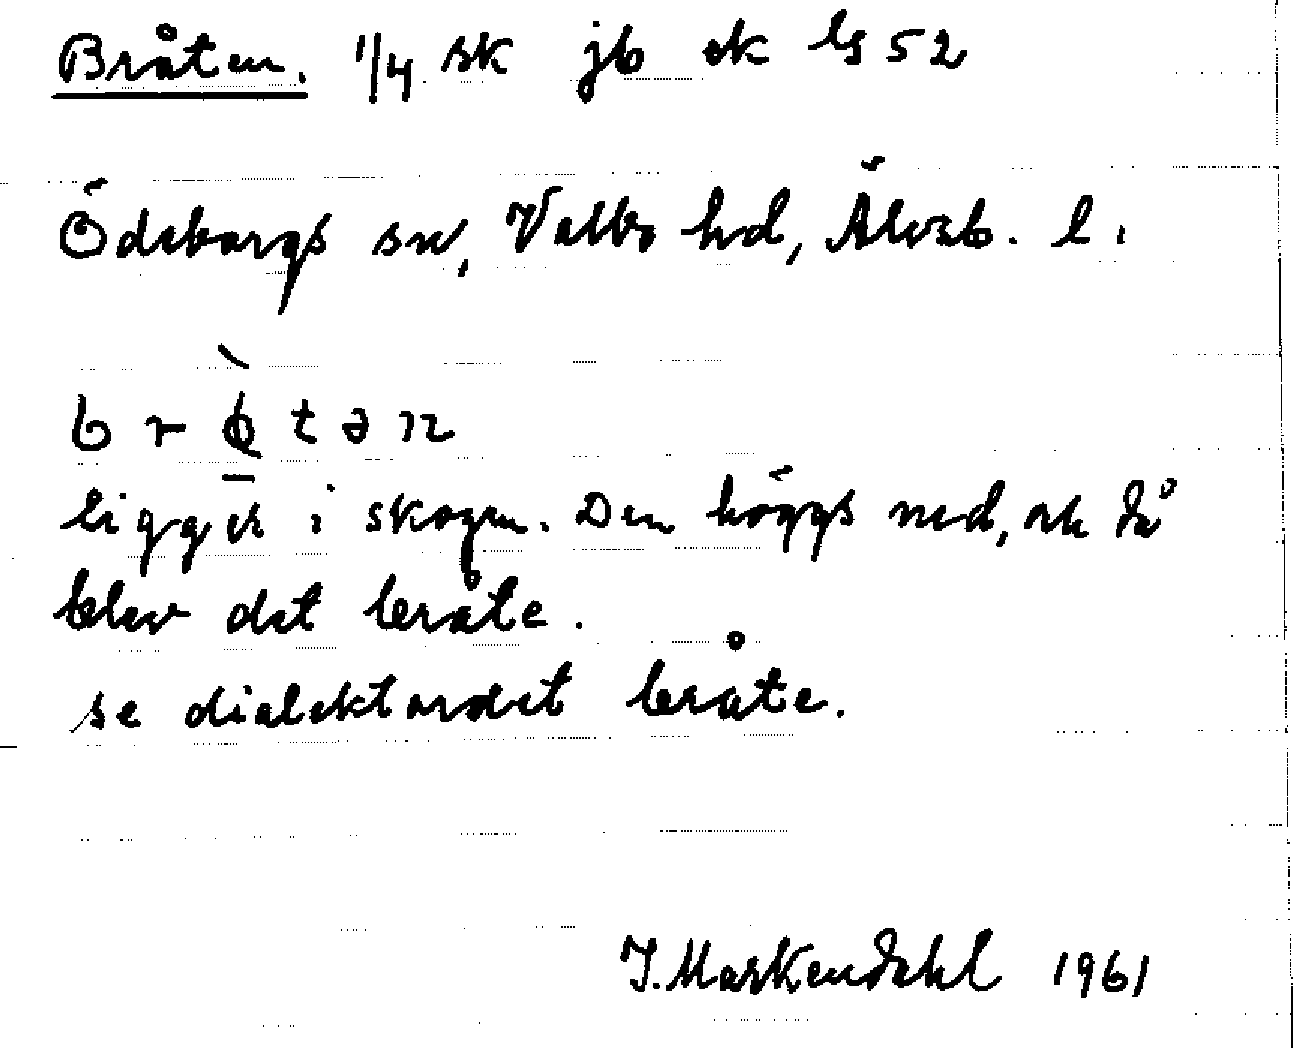 Bråten. 1/4 sk jb ek
Ödeborgs sn, Valbo hd, Älvsb. l.
ligger i skogen. Den höggs ned, och då
blev det bråte.
se dialektordet bråte.
J. Markendahl 1961